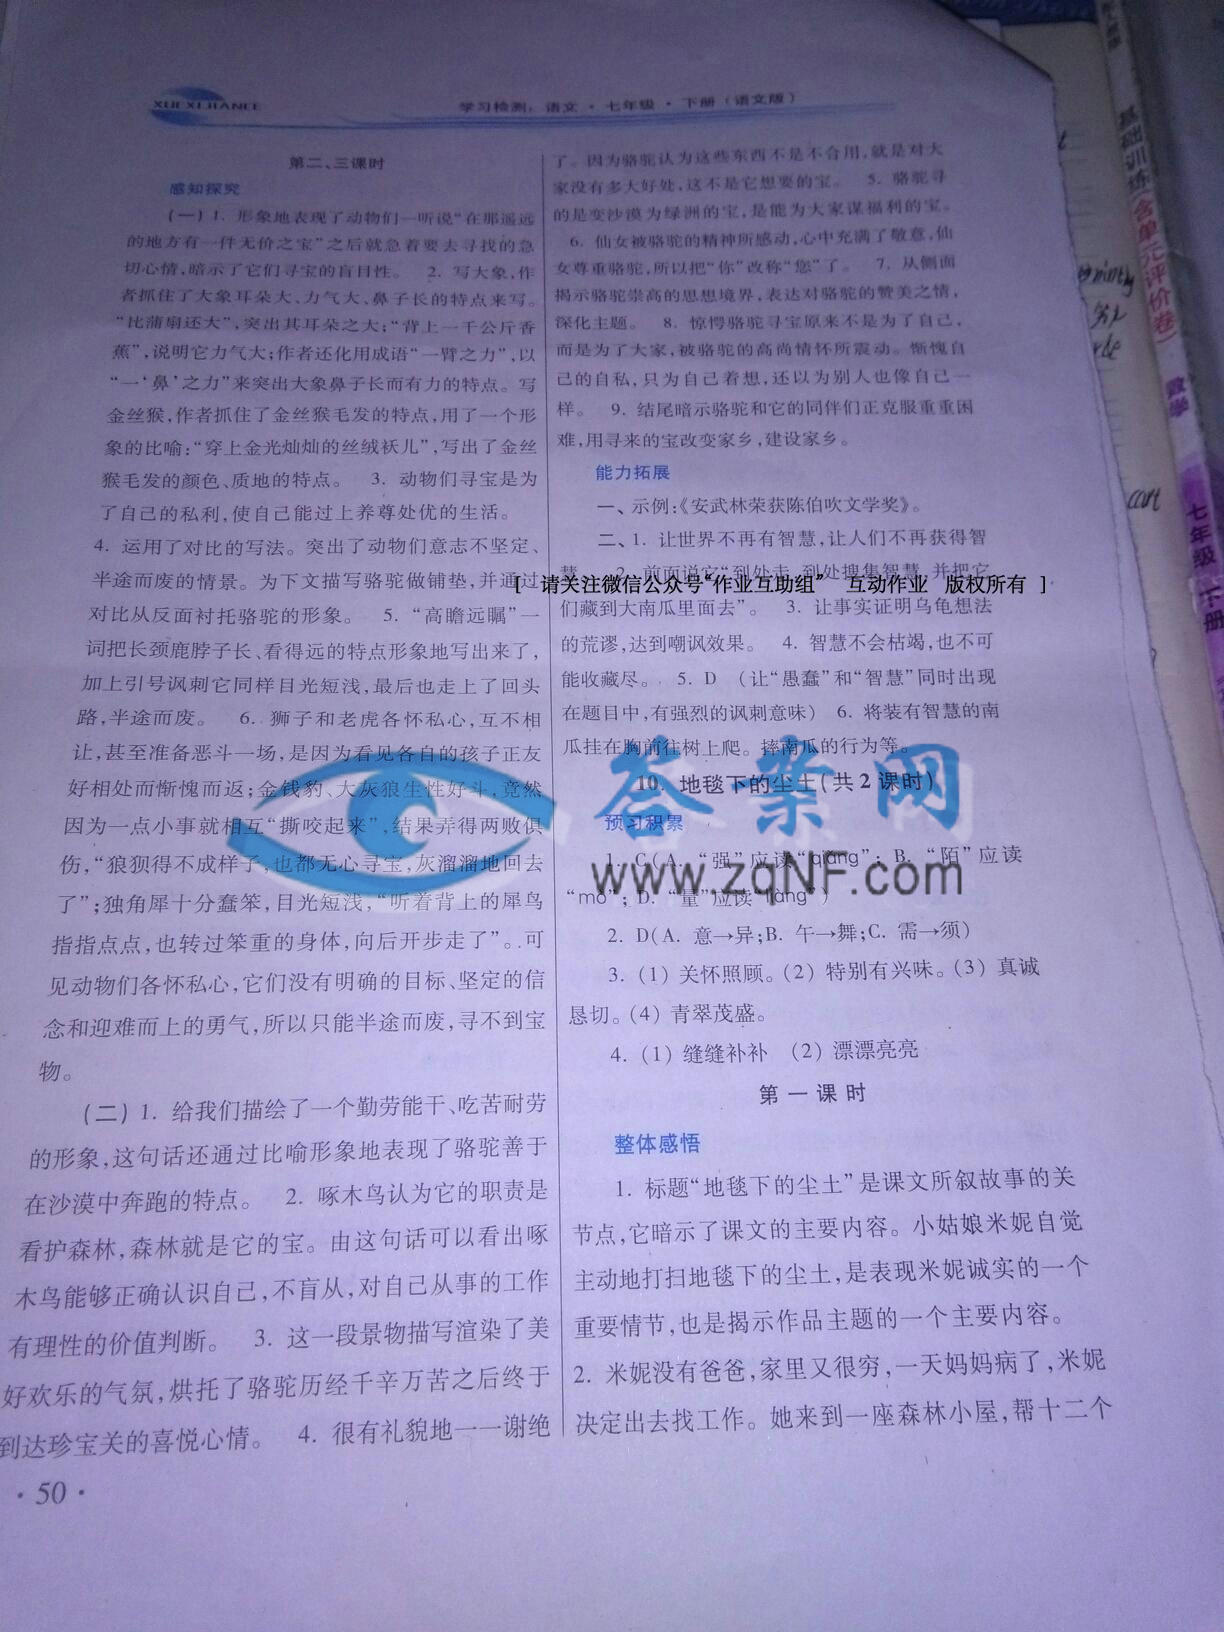 XUEXIJIANCE
学习检测：语文·七年级·下册（语文版）
第二、三课时
感知探究
（一）1. 形象地表现了动物们一听说“在那遥远
的地方有一件无价之宝”之后就急着要去寻找的急
切心情，暗示了它们寻宝的盲目性。 2. 写大象，作
者抓住了大象耳朵大、力气大、鼻子长的特点来写。
“比蒲扇还大”，突出其耳朵之大；“背上一千公斤香
蕉”，说明它力气大；作者还化用成语“一臂之力”，以
“一‘鼻’之力”来突出大象鼻子长而有力的特点。写
金丝猴，作者抓住了金丝猴毛发的特点，用了一个形
象的比喻：“穿上金光灿灿的丝绒袄儿”，写出了金丝
猴毛发的颜色、质地的特点。 3. 动物们寻宝是为
了自己的私利，使自己能过上养尊处优的生活。
4. 运用了对比的写法。突出了动物们意志不坚定、
半途而废的情景。为下文描写骆驼做铺垫，并通过
对比从反面衬托骆驼的形象。 5. “高瞻远瞩”一
词把长颈鹿脖子长、看得远的特点形象地写出来了，
加上引号讽刺它同样目光短浅，最后也走上了回头
路，半途而废。 6. 狮子和老虎各怀私心，互不相
让，甚至准备恶斗一场，是因为看见各自的孩子正友
好相处而惭愧而返；金钱豹、大灰狼生性好斗，竟然
因为一点小事就相互“撕咬起来”，结果弄得两败俱
伤，“狼狈得不成样子，也都无心寻宝，灰溜溜地回去
了”；独角犀十分蠢笨，目光短浅，“听着背上的犀鸟
指指点点，也转过笨重的身体，向后开步走了”。可
见动物们各怀私心，它们没有明确的目标、坚定的信
念和迎难而上的勇气，所以只能半途而废，寻不到宝
物。
（二）1. 给我们描绘了一个勤劳能干、吃苦耐劳
的形象，这句话还通过比喻形象地表现了骆驼善于
在沙漠中奔跑的特点。 2. 啄木鸟认为它的职责是
看护森林，森林就是它的宝。由这句话可以看出啄
木鸟能够正确认识自己，不盲从，对自己从事的工作
有理性的价值判断。 3. 这一段景物描写渲染了美
好欢乐的气氛，烘托了骆驼历经千辛万苦之后终于
到达珍宝关的喜悦心情。 4. 很有礼貌地——谢绝
·50·
了。因为骆驼认为这些东西不是不合用，就是对大
家没有多大好处，这不是它想要的宝。 5. 骆驼寻
的是变沙漠为绿洲的宝，是能为大家谋福利的宝。
6. 仙女被骆驼的精神所感动，心中充满了敬意，仙
女尊重骆驼，所以把“你”改称“您”了。 7. 从侧面
揭示骆驼崇高的思想境界，表达对骆驼的赞美之情，
深化主题。 8. 惊愕骆驼寻宝原来不是为了自己，
而是为了大家，被骆驼的高尚情怀所震动。惭愧自
己的自私，只为自己着想，还以为别人也像自己一
样。 9. 结尾暗示骆驼和它的同伴们正克服重重困
难，用寻来的宝改变家乡，建设家乡。
能力拓展
一、示例：《安武林荣获陈伯吹文学奖》。
二、1. 让世界不再有智慧，让人们不再获得智
慧。 2. 前面说它“到处走，到处搜集智慧，并把它
[ 请关注微信公众号“作业互助组” 互动作业 版权所有 ]
们藏到大南瓜里面去”。 3. 让事实证明乌龟想法
的荒谬，达到嘲讽效果。 4. 智慧不会枯竭，也不可
能收藏尽。 5. D （让“愚蠢”和“智慧”同时出现
在题目中，有强烈的讽刺意味） 6. 将装有智慧的南
瓜挂在胸前往树上爬。摔南瓜的行为等。
10. 地毯下的尘土（共2课时）
答案网
www.zqNF.com
预习积累
1. C（A. “强”应读“qiǎng”；B. “陌”应读
“mò”；D. “量”应读“liàng”）
2. D（A. 意→异；B. 午→舞；C. 需→须）
3. （1）关怀照顾。（2）特别有兴味。（3）真诚
恳切。（4）青翠茂盛。
4. （1）缝缝补补 （2）漂漂亮亮
第一课时
整体感悟
1. 标题“地毯下的尘土”是课文所叙故事的关
节点，它暗示了课文的主要内容。小姑娘米妮自觉
主动地打扫地毯下的尘土，是表现米妮诚实的一个
重要情节，也是揭示作品主题的一个主要内容。
2. 米妮没有爸爸，家里又很穷，一天妈妈病了，米妮
决定出去找工作。她来到一座森林小屋，帮十二个
基础训练（含单元评价卷）
数学
七年级
下册
cart